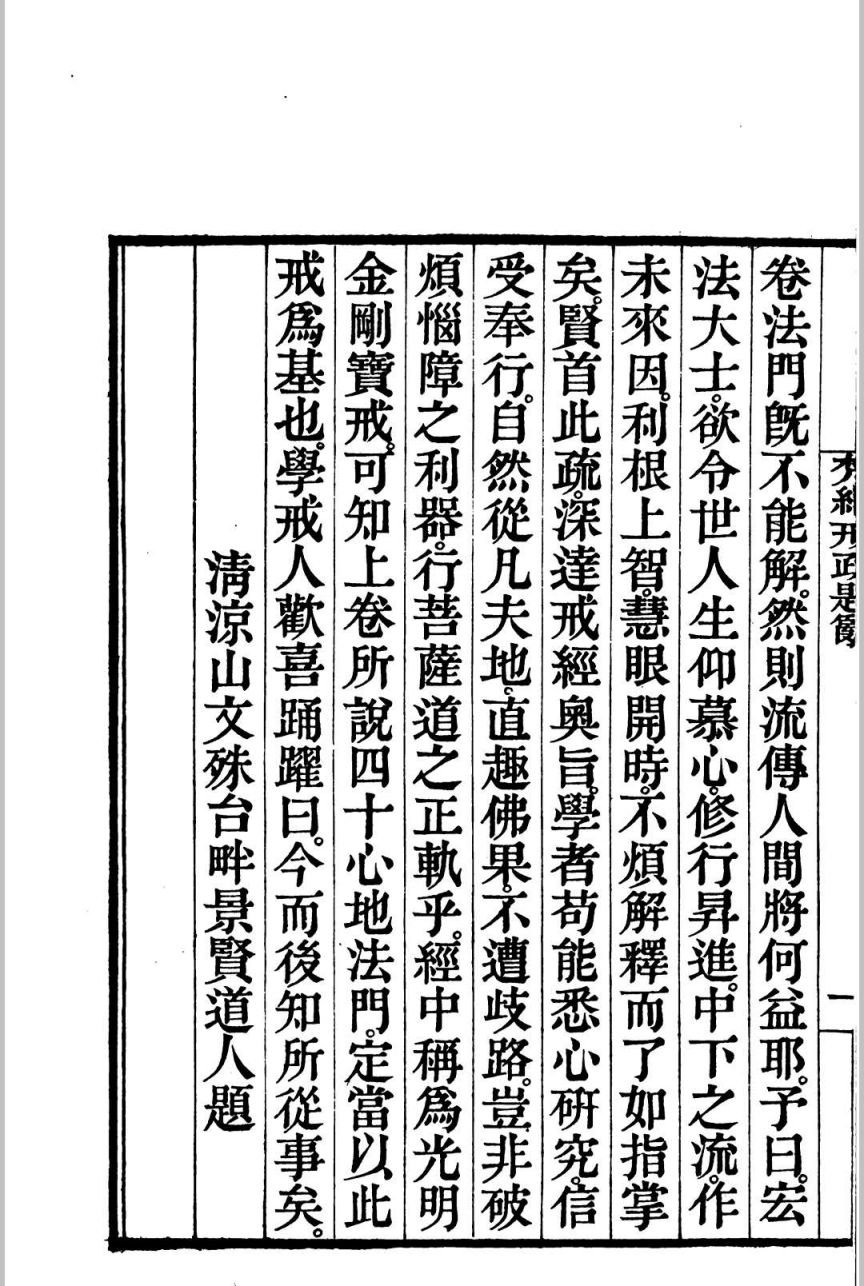 卷法門旣不能解。然則流傳人間將何益耶。予曰。宏
法大士。欲令世人生仰慕心。修行昇進。中下之流。作
未來因。利根上智。慧眼開時。不煩解釋而了如指掌
矣。賢首此疏。深達戒經奧旨。學者苟能悉心硏究。信
受奉行。自然從凡夫地。直趣佛果。不遭歧路。豈非破
煩惱障之利器。行菩薩道之正軌乎。經中稱爲光明
金剛寶戒。可知上卷所說四十心地法門。定當以此
戒爲基也。學戒人歡喜踊躍曰。今而後知所從事矣。
淸涼山文殊台畔景賢道人題